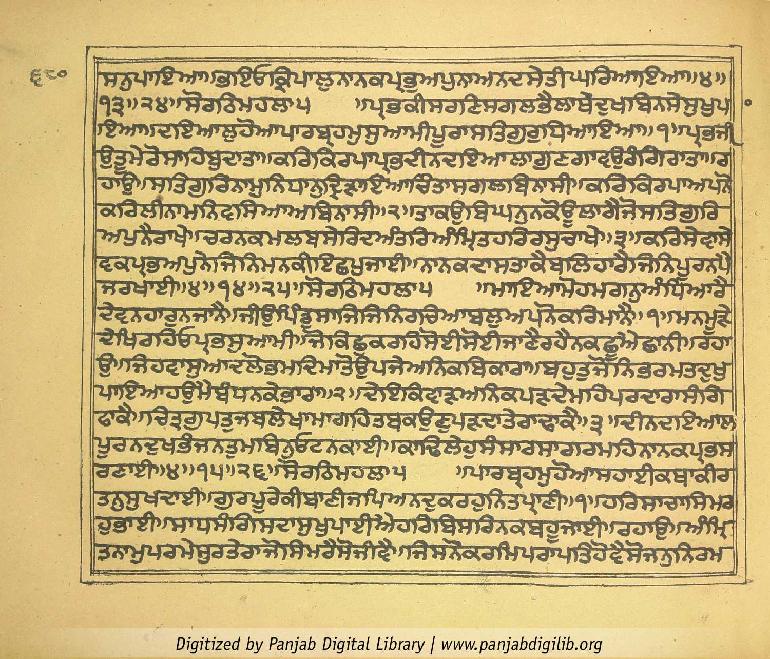 ਸਨੁਪਾਇਆ॥ਭਇਓਕ੍ਰਿਪਾਲੁਨਾਨਕਪ੍ਰਭੁਅਪੁਨਾਅਨਦਸੇਤੀਘਰਿਆਇਆ॥੪॥
੬੮੦
੧੩॥੨੪॥ਸੋਰਠਿਮਹਲਾ੫ ॥ਪ੍ਰਭਕੀਸਰਣਿਸਗਲਭੈਲਾਥੇਦੁਖਬਿਨਸੇਸੁਖੁਪਾ
ਇਆ॥ਦਇਆਲੁਹੋਆਪਾਰਬ੍ਰਹਮੁਸੁਆਮੀਪੂਰਾਸਤਿਗੁਰੁਧਿਆਇਆ॥੧॥ਪ੍ਰਭਜੀ
ਉਤੂਮੇਰੋਸਾਹਿਬੁਦਾਤਾ॥ਕਰਿਕਿਰਪਾਪ੍ਰਭਦੀਨਦਇਆਲਾਗੁਣਗਾਵਉਰੰਗਿਰਾਤਾ॥ਰ
ਹਾਉ॥ਸਤਿਗੁਰਿਨਾਮੁਨਿਧਾਨੁਦ੍ਰਿੜਾਇਆਚਿੰਤਾਸਗਲਬਿਨਾਸੀ॥ਕਰਿਕਿਰਪਾਅਪੁਨੋ
ਕਰਿਲੀਨਾਮਨਿਵਸਿਆਅਬਿਨਾਸੀ॥੨॥ਤਾਕਉਬਿਘਨੁਨਕੋਊਲਾਗੈਜੋਸਤਿਗੁਰਿ
ਅਪੁਨੈਰਾਖੇ॥ਚਰਨਕਮਲਬਸੇਰਿਦਅੰਤਰਿਅੰਮ੍ਰਿਤਹਰਿਰਸੁਚਾਖੇ॥੩॥ਕਰਿਸੇਵਾਸੇ
ਵਕਪ੍ਰਭਅਪੁਨੇਜਿਨਿਮਨਕੀਇਛਪੁਜਾਈ॥ਨਾਨਕਦਾਸਤਾਕੈਬਲਿਹਾਰੈਜਿਨਿਪੂਰਨਪੈ
ਜਰਖਾਈ॥੪॥੧੪॥੨੫॥ਸੋਰਠਿਮਹਲਾ੫ ॥ਮਾਇਆਮੋਹਮਗਨੁਅੰਧਿਆਰੈ
ਦੇਵਨਹਾਰੁਨਜਾਨੈ॥ਜੀਉਪਿੰਡੁਸਾਜਿਜਿਨਿਰਚਿਆਬਲੁਅਪੁਨੋਕਰਿਮਾਨੈ॥੧॥ਮਨਮੂੜੇ
ਦੇਖਿਰਹਿਓਪ੍ਰਭਸੁਆਮੀ॥ਜੋਕਿਛੁਕਰਹਿਸੋਈਸੋਈਜਾਣੈਰਹੈਨਕਛੂਐਛਾਨੀ॥ਰਹਾ
ਉ॥ਜਿਹਵਾਸੁਆਦਲੋਭਮਦਿਮਾਤੋਉਪਜੇਅਨਿਕਬਿਕਾਰਾ॥ਬਹੁਤੁਜੋਨਿਭਰਮਤਦੁਖੁ
ਪਾਇਆਹਉਮੈਬੰਧਨਕੇਭਾਰਾ॥੨॥ਦੇਇਕਿਵਾੜਅਨਿਕਪੜਦੇਮਹਿਪਰਦਾਰਾਸੰਗਿ
ਫਾਕੈ॥ਚਿਤ੍ਰਗੁਪਤੁਜਬਲੇਖਾਮਾਗਹਿਤਬਕਉਣੁਪੜਦਾਤੇਰਾਢਾਕੈ॥੩॥ਦੀਨਦਇਆਲ
ਪੂਰਨਦੁਖਭੰਜਨਤੁਮਬਿਨੁਓਟਨਕਾਈ॥ਕਾਢਿਲੇਹੁਸੰਸਾਰਸਾਗਰਮਹਿਨਾਨਕਪ੍ਰਭਸ
ਰਣਾਈ॥੪॥੧੫॥੨੬॥ਸੋਰਠਿਮਹਲਾ੫ ॥ਪਾਰਬ੍ਰਹਮੁਹੋਆਸਹਾਈਕਥਾਕੀਰ
ਤਨੁਸੁਖਦਾਈ॥ਗੁਰਪੂਰੇਕੀਬਾਣੀਜਪਿਅਨਦੁਕਰਹੁਨਿਤਪ੍ਰਾਣੀ॥੧॥ਹਰਿਸਾਚਾਸਿਮਰ
ਹੁਭਾਈ॥ਸਾਧਸੰਗਿਸਦਾਸੁਖੁਪਾਈਐਹਰਿਬਿਸਰਿਨਕਬਹੂਜਾਈ॥ਰਹਾਉ॥ਅੰਮ੍ਰਿ
ਤਨਾਮੁਪਰਮੇਸੁਰਤੇਰਾਜੋਸਿਮਰੈਸੋਜੀਵੈ॥ਜਿਸਨੋਕਰਮਿਪਰਾਪਤਿਹੋਵੈਸੋਜਨੁਨਿਰਮ
Digitized by Panjab Digital Library | www.panjabdigilib.org